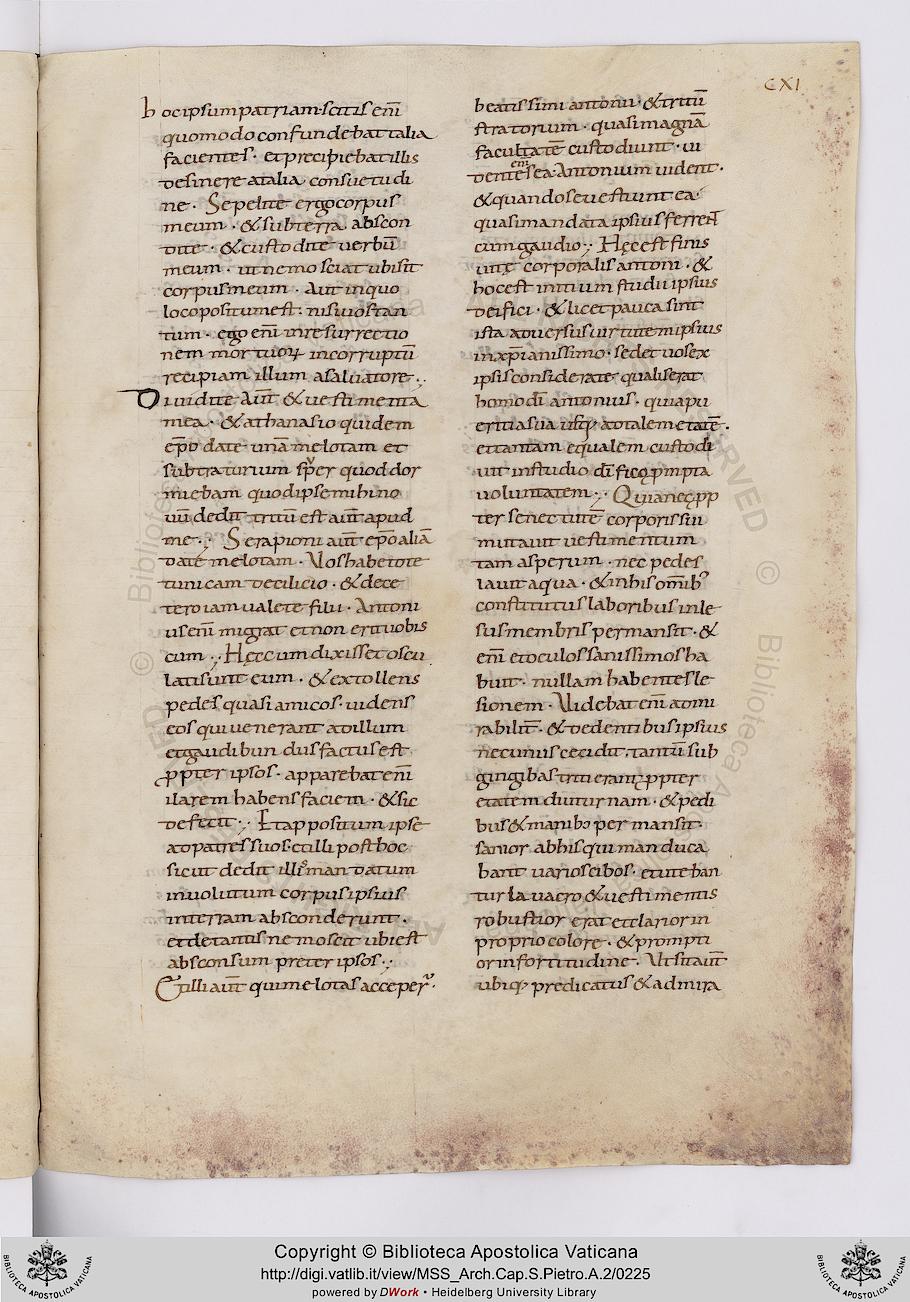 CXI
hoc ipsum patriam · scitis enī
quomodo confundebat talia
facientes · et precipiebat illis
desinere a talia consuetudi
ne · Sepelite ergo corpus
meum · & sub terra abscon
dite · & custodite uerbū
meum · ut nemo sciat ubi sit
corpus meum · Aut in quo
loco positum est · nisi uos tan
tum · ego enī in resurrectio
nem mortuoꝝ incorruptū
recipiam illum a saluatore ..
Diuidite aūt & uestimenta
mea · & athanasio quidem
ep̄o date unā melotam et
subtraturium sup̄er quod dor
miebam quod ipse mihi no
uū dedit tritū est aūt apud
me · Serapioni aūt ep̄o aliā
date melotam · Uos habetote
tunicam de cilicio · & de ce
tero iam ualete filii · Antoni
us enī migrat et non erit uobis
cum ·, Hęc cum dixisset oscu
lati sunt eum · & extollens
pedes quasi amicos · uidens
eos qui uenerant ad illum
et gaudibundus factus est
ꝓpter ipsos · apparebat enī
ilarem habens faciem · & sic
defecit ·, Et appositum ipse
ad patres suos · et illi post hoc
sicut dedit illis man datum
inuolutum corpus ipsius
in terram absconderunt ·
et de tantis nemo scit ubi est
absconsum preter ipsos ·,
Et illi aūt qui melotas acceper̄ ·
beatissimi antonii · & tritū
stratorium · quasi magnā
facultatē custodiunt · ui
dentes enī ea Antonium uident ·
& quando se uestiunt ea ·
quasi mandata ipsius ferrent
cum gaudio ·, Hęc est finis
uitę corporalis antoni · &
hoc est initium studii ipsius
deifici · & licet pauca sint
ista aduersus uirtutem ipsius
in xp̄ianissimo · sed et uos ex
ipsis considerate qualis erat
homo dī antonius · qui a pu
eritia sua usq; ad talem etatē ·
et tantam equalem custodi
uit in studio dī ficę prompta
uoluntatem ·, Qui a nec ꝓp
ter senectutē corporis sui
mutauit uestimentum
tam asperum · nec pedes
lauit aqua · & in his omīb'
constitutus laboribus inle
sus membris permansit · &
enī et oculos sanissimos ha
buit · nullam habentes le
sionem · Uidebat enī admi
rabiliť · & dedentibus ipsius
nec unus cecidit · tantū sub
gingibas triti erant ꝓpter
etatem diuturnam · & pedi
bus & manibꝫ permansit
sanior ab his qui manduca
bant uarios cibos · et uteban
tur lauacro & uestimentis
robustior erat et clarior in
proprio colore · & prompti
or in fortitudine · Ut sit aūt
ubiq; predicatus & admira
Copyright © Biblioteca Apostolica Vaticana
http://digi.vatlib.it/view/MSS_Arch.Cap.S.Pietro.A.2/0225
powered by DWork • Heidelberg University Library
BIBLIOTECA APOSTOLICA VATICANA
BIBLIOTECA APOSTOLICA VATICANA